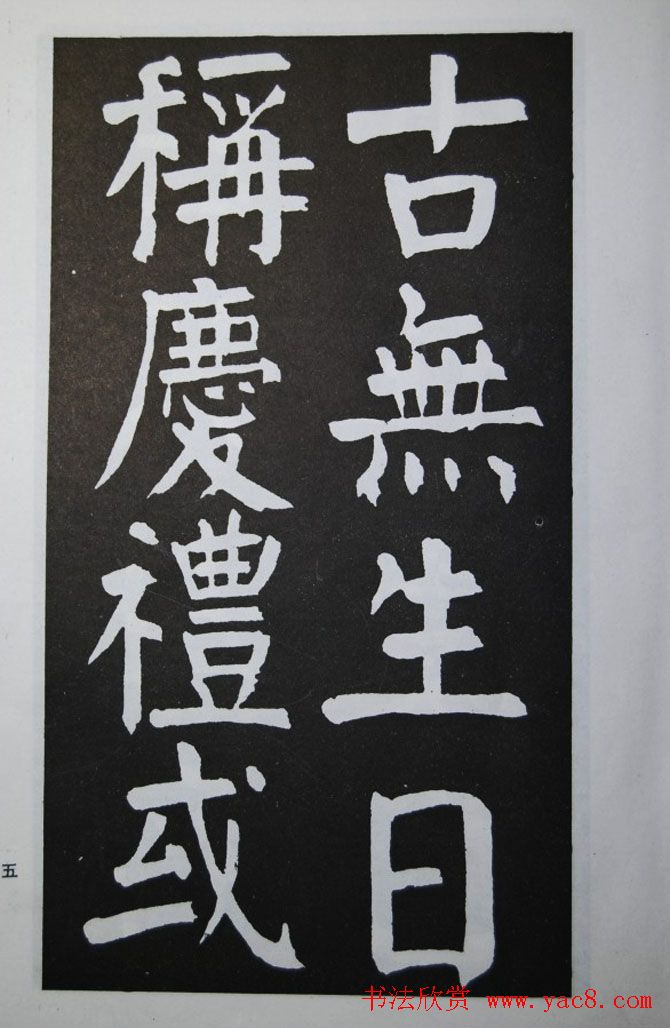 古無生日
稱慶禮或
五
书法欣赏 www.yac8.com